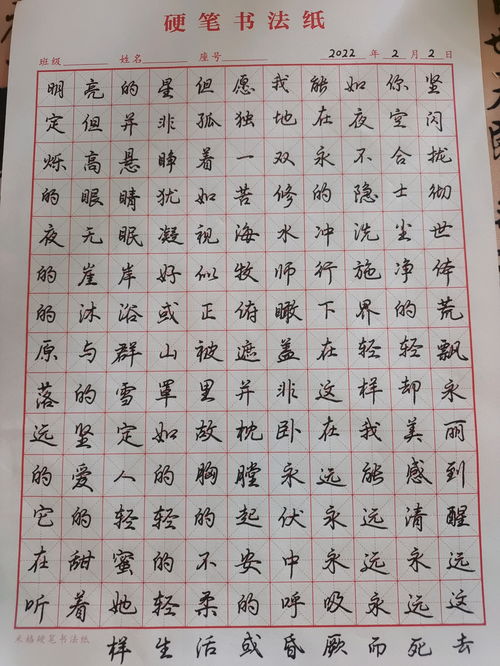 硬笔书法纸
班级 姓名 座号 2022 年 2 月 2 日
明亮的星但愿我能如你坚
定但并非孤独地在夜空闪
烁高悬睁着一双永不合拢
的眼睛犹如苦修的隐士彻
夜无眠凝视海水冲洗尘世
的崖岸好似牧师行施净体
的沐浴或正俯瞰下界的荒
原与群山被遮盖在轻轻飘
落的雪罩里并非这样却永
远坚定如故枕卧在我美丽
的爱人的胸膛永远能感到
它的轻轻的起伏永远清醒
在甜蜜的不安中永远永远
听着她轻柔的呼吸永远这
米格硬笔书法纸 样生活或昏厥而死去